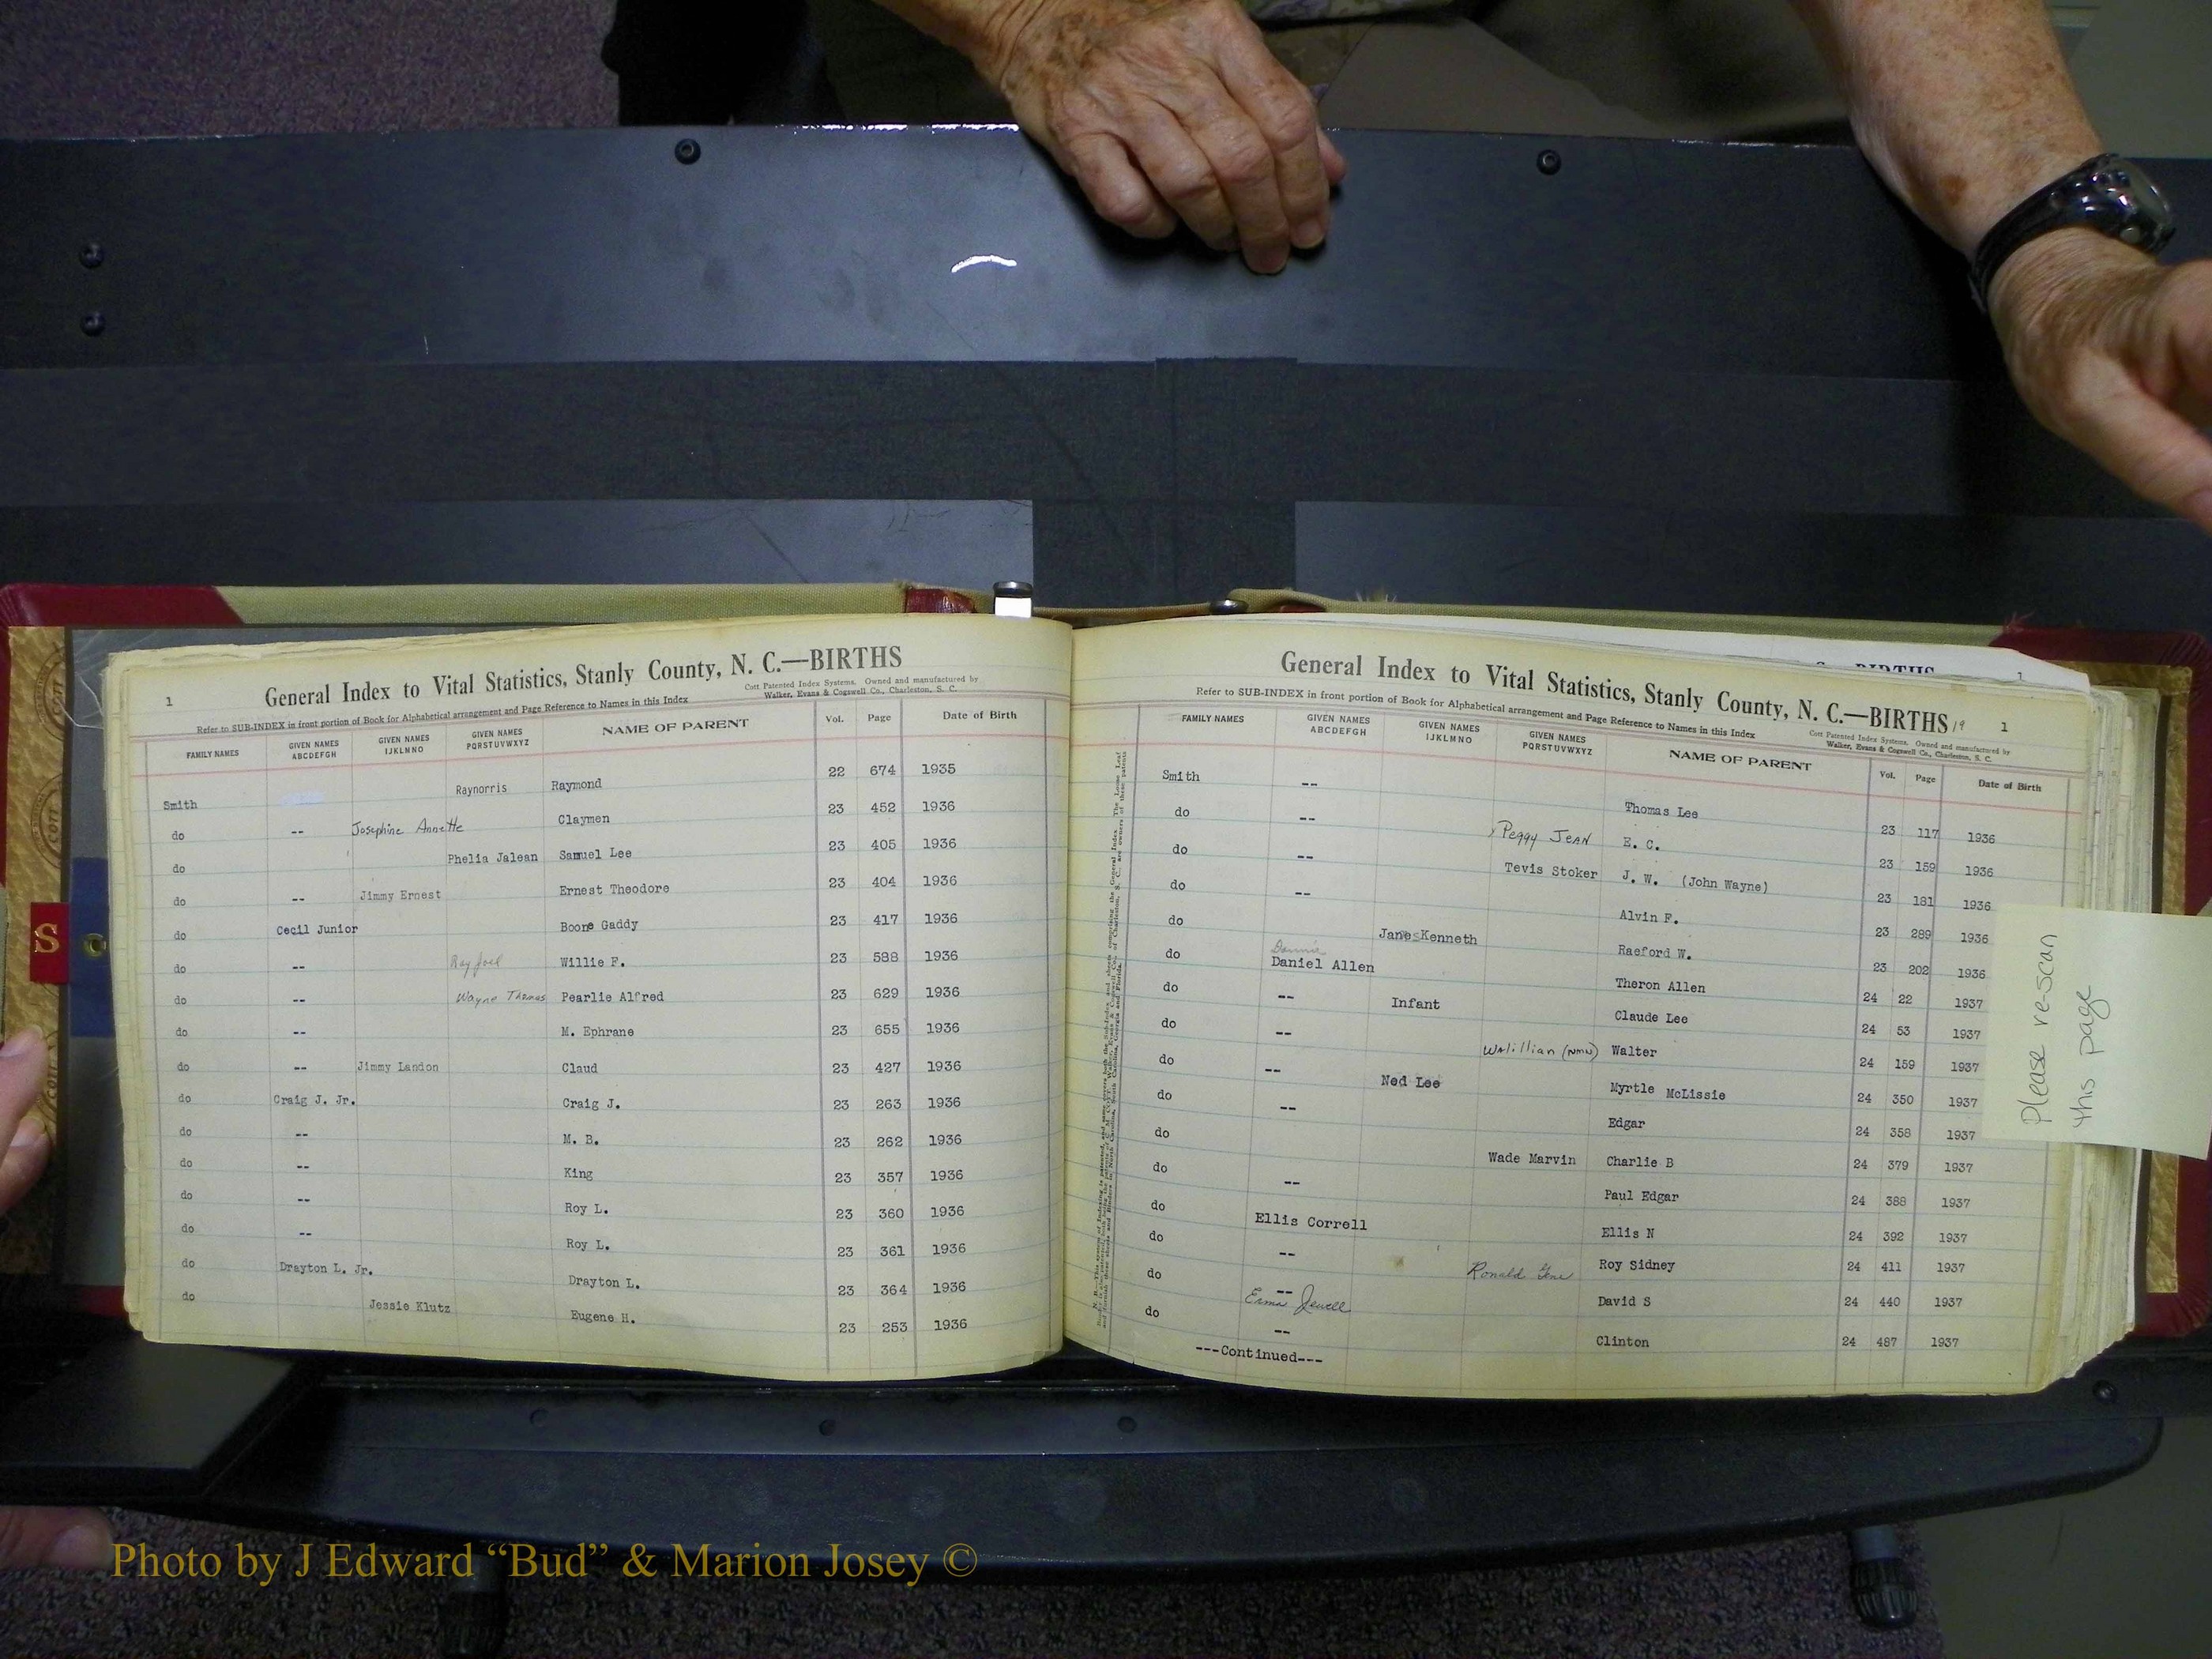 1
General Index to Vital Statistics, Stanly County, N. C.—BIRTHS
Cott Patented Index Systems. Owned and manufactured by
Walker, Evans & Cogswell Co., Charleston, S. C.
Refer to SUB-INDEX in front portion of Book for Alphabetical arrangement and Page Reference to Names in this Index
FAMILY NAMES GIVEN NAMES ABCDEFGH GIVEN NAMES IJKLMNO GIVEN NAMES PQRSTUVWXYZ NAME OF PARENT Vol. Page Date of Birth
Smith Raynorris Raymond 22 674 1935
do -- Josephine Annette Claymen 23 452 1936
do Phelia Jalean Samuel Lee 23 405 1936
do -- Jimmy Ernest Ernest Theodore 23 404 1936
do Cecil Junior Boone Gaddy 23 417 1936
do -- Ray Joel Willie F. 23 588 1936
do -- Wayne Thomas Pearlie Alfred 23 629 1936
do -- M. Ephrane 23 655 1936
do -- Jimmy Landon Claud 23 427 1936
do Craig J. Jr. Craig J. 23 263 1936
do -- M. B. 23 262 1936
do -- King 23 357 1936
do -- Roy L. 23 360 1936
do -- Roy L. 23 361 1936
do Drayton L. Jr. Drayton L. 23 364 1936
do Jessie Klutz Eugene H. 23 253 1936
General Index to Vital Statistics, Stanly County, N. C.—BIRTHS 19 1
Refer to SUB-INDEX in front portion of Book for Alphabetical arrangement and Page Reference to Names in this Index
Cott Patented Index Systems. Owned and manufactured by
Walker, Evans & Cogswell Co., Charleston, S. C.
FAMILY NAMES GIVEN NAMES ABCDEFGH GIVEN NAMES IJKLMNO GIVEN NAMES PQRSTUVWXYZ NAME OF PARENT Vol. Page Date of Birth
Smith -- Thomas Lee 23 117 1936
do -- Peggy Jean E. C. 23 159 1936
do -- Tevis Stoker J. W. (John Wayne) 23 181 1936
do -- Alvin F. 23 289 1936
do James Kenneth Raeford W. 23 202 1936
do Daniel Allen Theron Allen 24 22 1937
do -- Infant Claude Lee 24 53 1937
do -- (NMN) Walter 24 159 1937
do -- Ned Lee Myrtle McLissie 24 350 1937
do -- Edgar 24 358 1937
do Wade Marvin Charlie B 24 379 1937
do -- Paul Edgar 24 388 1937
do Ellis Correll Ellis N 24 392 1937
do -- Ronald Gene Roy Sidney 24 411 1937
do -- Erma Jewell David S 24 440 1937
do -- Clinton 24 487 1937
---Continued---
Please re-scan
this page
S
Photo by J Edward “Bud” & Marion Josey ©